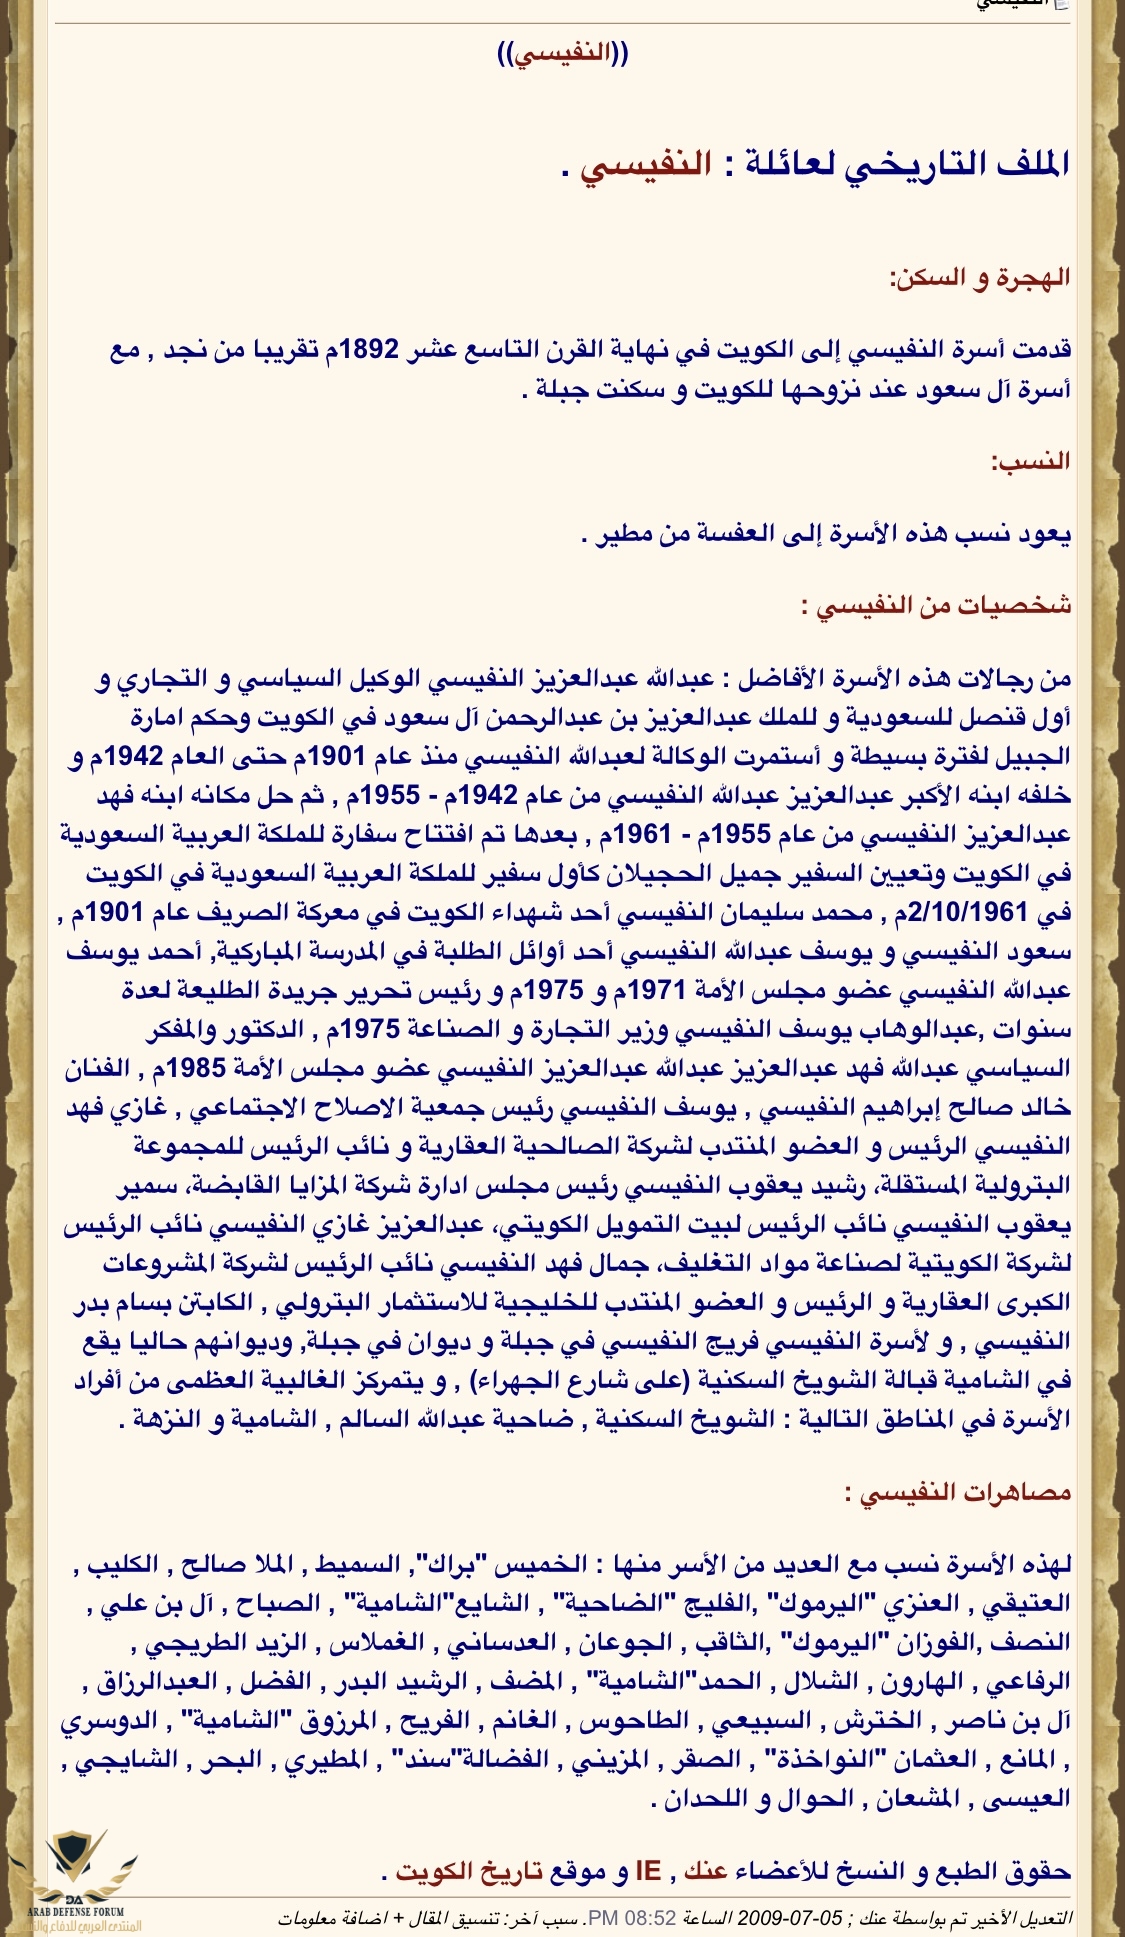 النفيسي
((النفيسي))
الملف التاريخي لعائلة : النفيسي .
الهجرة و السكن:
قدمت أسرة النفيسي إلى الكويت في نهاية القرن التاسع عشر 1892م تقريبا من نجد , مع
أسرة آل سعود عند نزوحها للكويت و سكنت جبلة .
النسب:
يعود نسب هذه الأسرة إلى العفسة من مطير .
شخصيات من النفيسي :
من رجالات هذه الأسرة الأفاضل : عبدالله عبدالعزيز النفيسي الوكيل السياسي و التجاري و
أول قنصل للسعودية و للملك عبدالعزيز بن عبدالرحمن آل سعود في الكويت وحكم امارة
الجبيل لفترة بسيطة و أستمرت الوكالة لعبدالله النفيسي منذ عام 1901م حتى العام 1942م و
خلفه ابنه الأكبر عبدالعزيز عبدالله النفيسي من عام 1942م - 1955م , ثم حل مكانه ابنه فهد
عبدالعزيز النفيسي من عام 1955م - 1961م , بعدها تم افتتاح سفارة للملكة العربية السعودية
في الكويت وتعيين السفير جميل الحجيلان كأول سفير للملكة العربية السعودية في الكويت
في 2/10/1961م , محمد سليمان النفيسي أحد شهداء الكويت في معركة الصريف عام 1901م ,
سعود النفيسي و يوسف عبدالله النفيسي أحد أوائل الطلبة في المدرسة المباركية, أحمد يوسف
عبدالله النفيسي عضو مجلس الأمة 1971م و 1975م و رئيس تحرير جريدة الطليعة لعدة
سنوات ,عبدالوهاب يوسف النفيسي وزير التجارة و الصناعة 1975م , الدكتور والمفكر
السياسي عبدالله فهد عبدالعزيز عبدالله عبدالعزيز النفيسي عضو مجلس الأمة 1985م , الفنان
خالد صالح إبراهيم النفيسي , يوسف النفيسي رئيس جمعية الاصلاح الاجتماعي , غازي فهد
النفيسي الرئيس و العضو المنتدب لشركة الصالحية العقارية و نائب الرئيس للمجموعة
البترولية المستقلة، رشيد يعقوب النفيسي رئيس مجلس ادارة شركة المزايا القابضة، سمير
يعقوب النفيسي نائب الرئيس لبيت التمويل الكويتي، عبدالعزيز غازي النفيسي نائب الرئيس
لشركة الكويتية لصناعة مواد التغليف، جمال فهد النفيسي نائب الرئيس لشركة المشروعات
الكبرى العقارية و الرئيس و العضو المنتدب للخليجية للاستثمار البترولي , الكابتن بسام بدر
النفيسي , و لأسرة النفيسي فريج النفيسي في جبلة و ديوان في جبلة, وديوانهم حاليا يقع
في الشامية قبالة الشويخ السكنية (على شارع الجهراء) , و يتمركز الغالبية العظمى من أفراد
الأسرة في المناطق التالية : الشويخ السكنية , ضاحية عبدالله السالم , الشامية و النزهة .
مصاهرات النفيسي :
لهذه الأسرة نسب مع العديد من الأسر منها : الخميس "براك", السميط , الملا صالح , الكليب ,
العتيقي , العنزي "اليرموك" ,الفليج "الضاحية" , الشايع"الشامية" , الصباح , آل بن علي ,
النصف ,الفوزان "اليرموك" ,الثاقب , الجوعان , العدساني , الغملاس , الزيد الطريجي ,
الرفاعي , الهارون , الشلال , الحمد"الشامية" , المضف , الرشيد البدر , الفضل , العبدالرزاق ,
آل بن ناصر , الخترش , السبيعي , الطاحوس , الغانم , الفريح , المرزوق "الشامية" , الدوسري
, المانع , العثمان "النواخذة" , الصقر , المزيني , الفضالة"سند" , المطيري , البحر , الشايجي ,
العيسى , المشعان , الحوال و اللحدان .
حقوق الطبع و النسخ للأعضاء عنك , IE و موقع تاريخ الكويت .
التعديل الأخير تم بواسطة عنك ; 05-07-2009 الساعة 08:52 PM. سبب آخر: تنسيق المقال + اضافة معلومات
DA
ARAB DEFENSE FORUM
المنتدى العربي للدفاع